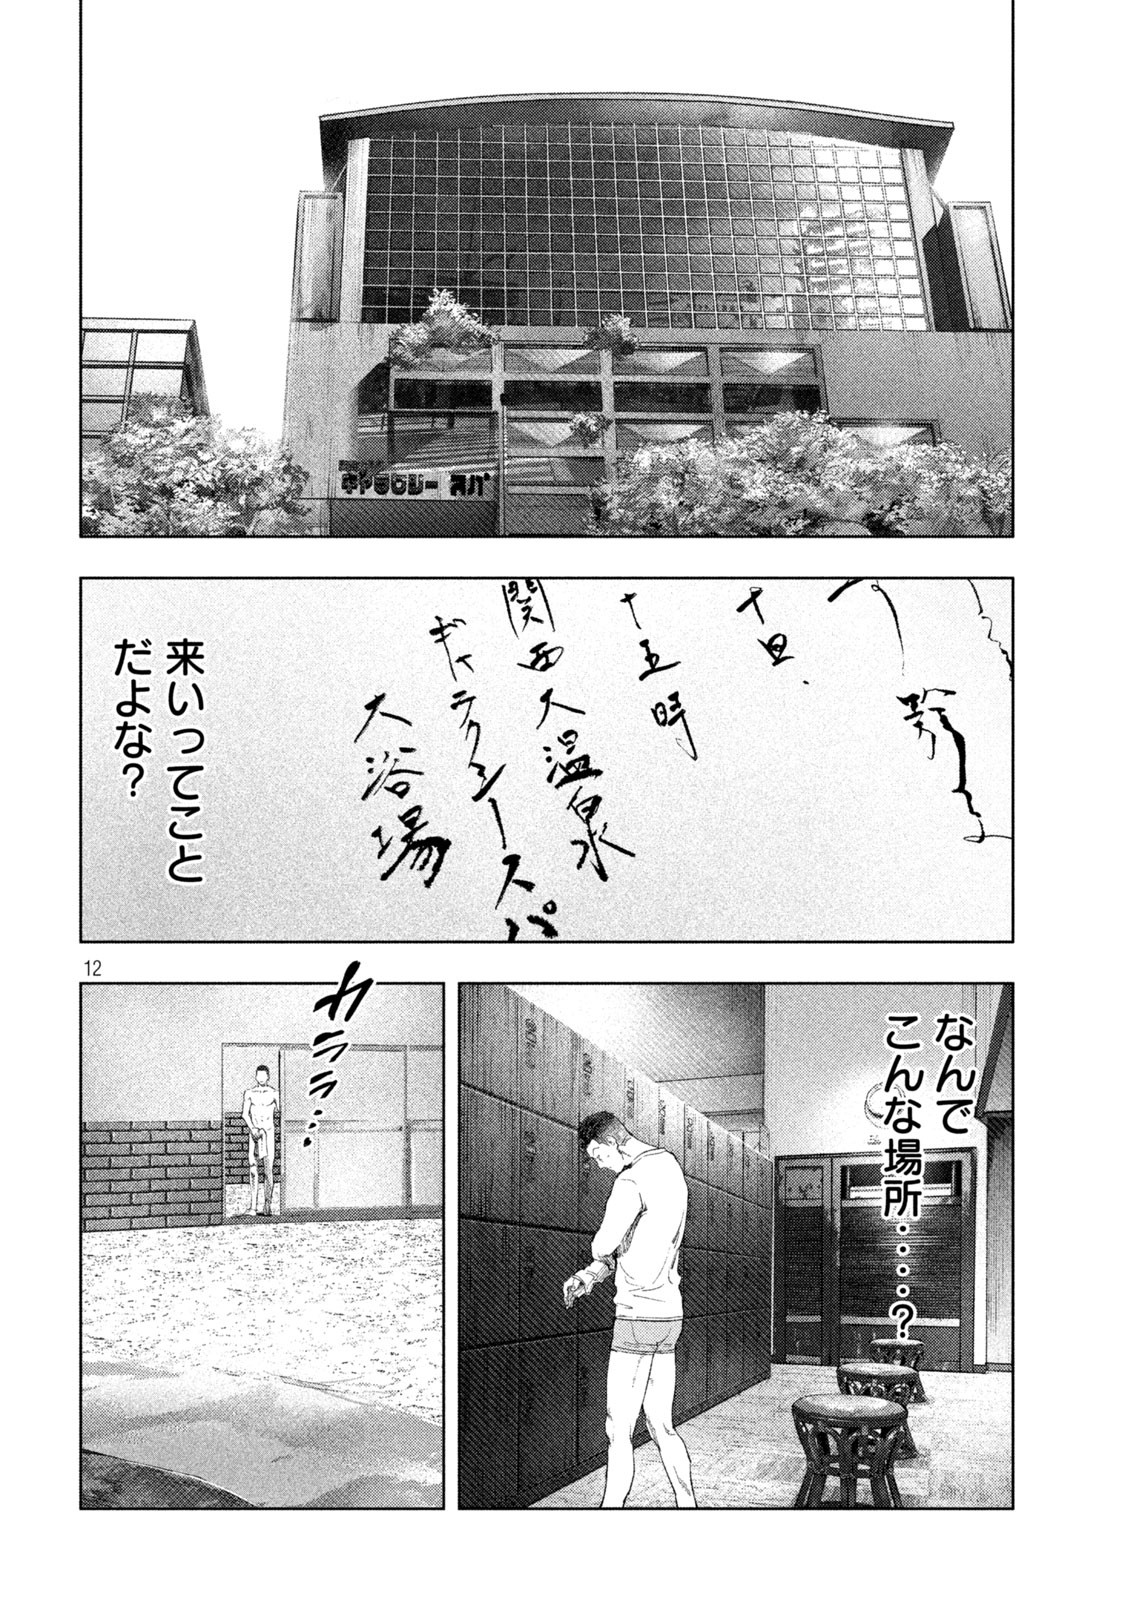 ギャラクシー スパ
十日、
十五時
関西大温泉
ギャラクシースパ
大浴場
来いってこと
だよな?
12
なんで
こんな場所……?
カララ…